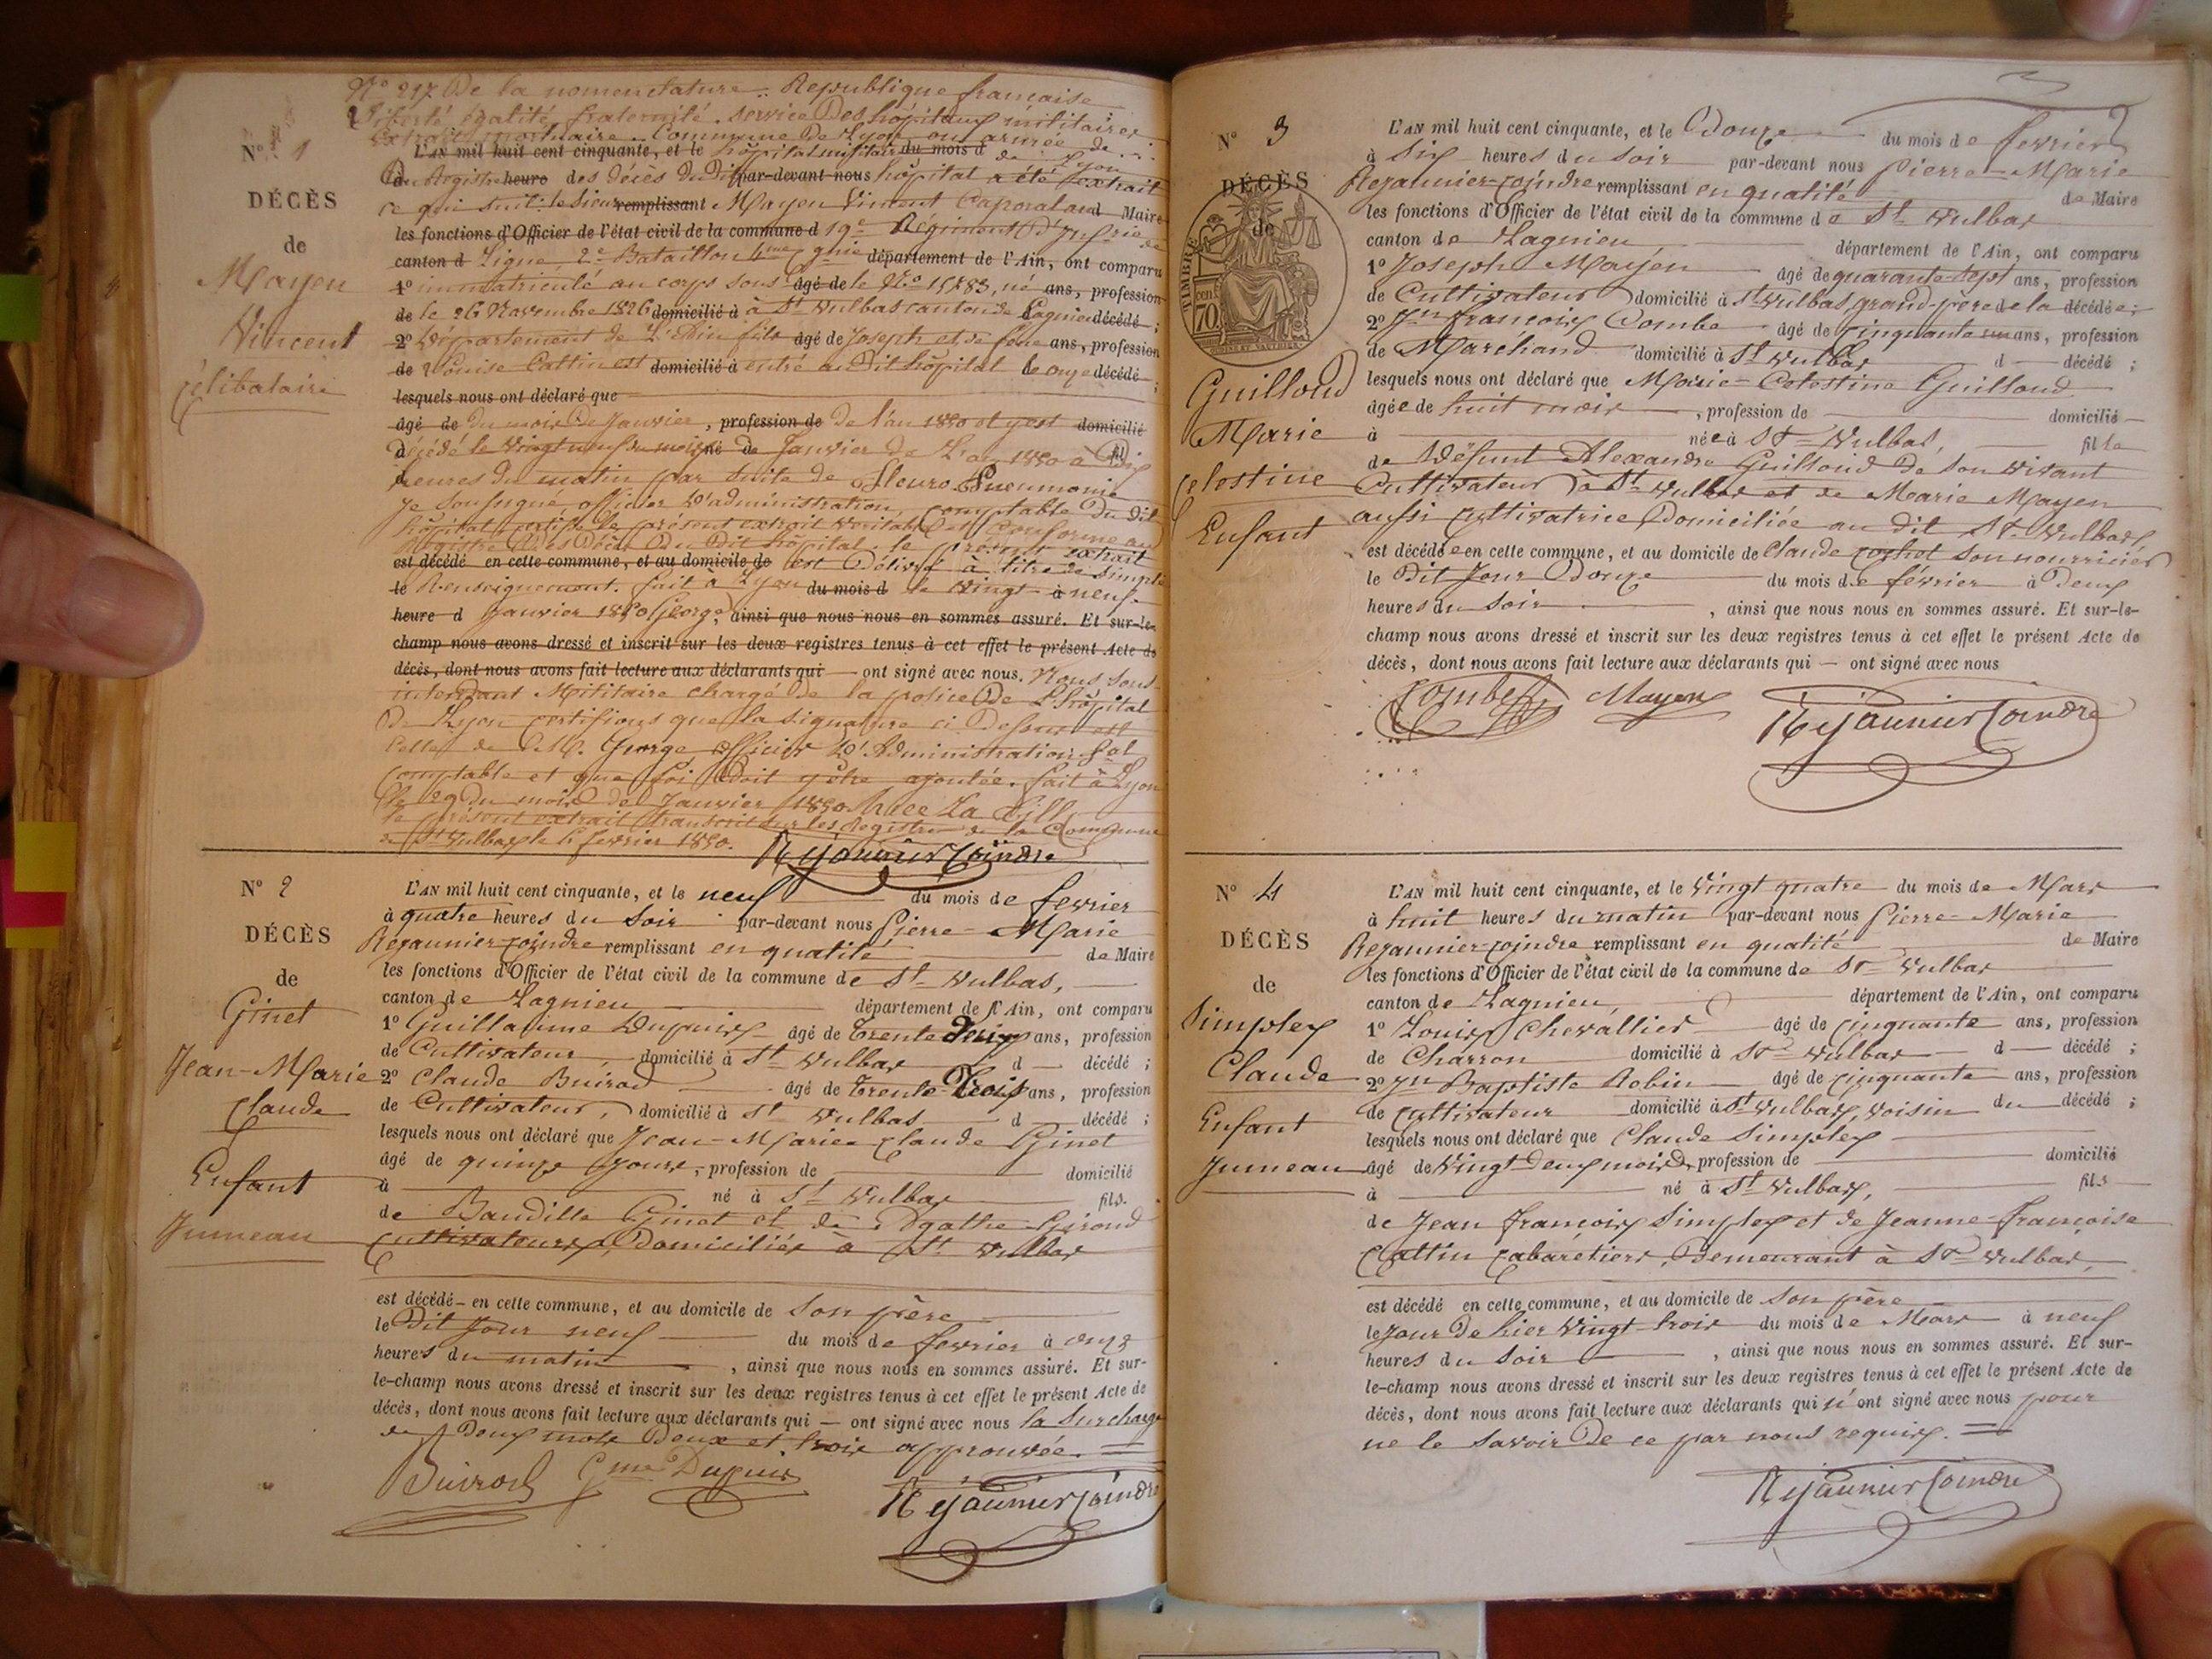 N° 217 De la nomenclature. République française
Liberté égalité fraternité. service Des hôpitaux militaires
Extrait mortuaire. Commune De Lyon ou armée de
N° 1
L'AN mil huit cent cinquante, et le hôpital militaire du mois d de Lyon
Du Registre heure des décès du dit par-devant nous hôpital a été extrait
DÉCÈS
ce qui suit: le sieur remplissant Mayen Vincent Caporal au d Maire
les fonctions d'Officier de l'état civil de la commune d 19e Régiment D'Infrie de
de
canton d Ligne 2e Bataillon 4me Cgnie département de l'Ain, ont comparu
Mayen
1° immatriculé au corps sous âgé de le No 15783, né ans, profession
de le 26 Novembre 1826 domicilié à à St Vulbas canton de Lagnieu décédé ;
Vincent
2° Département de L'Ain fils âgé de Joseph et de feue ans, profession
de Louise Cattin est domicilié à entré au Dit hôpital le onze décédé ;
célibataire
lesquels nous ont déclaré que
âgé de du mois de Janvier, profession de de l'an 1850 et y est domicilié
à décédé le vingt neuf du mois né de Janvier de L'an 1850 à Dix fil
heures du matin par suite de Pleuro Pneumonie
Je soussigné, officier D'administration, comptable du dit
hôpital certifie le présent extrait véritable et conforme au
Registre Des Décès Du Dit hôpital le présent extrait
est décédé en cette commune, et au domicile de est Délivré à titre de simple
le Renseignement. fait à Lyon du mois d le vingt à neuf
heure d Janvier 1850 George, ainsi que nous nous en sommes assuré. Et sur-le-
champ nous avons dressé et inscrit sur les deux registres tenus à cet effet le présent Acte de
décès, dont nous avons fait lecture aux déclarants qui — ont signé avec nous. Nous sous-
intendant Militaire chargé De la police De L'hôpital
De Lyon certifions que la signature ci Dessus est
celle de M. George officier D'Administration
comptable et que foi Doit y être ajoutée. fait à Lyon
le 29 du mois de Janvier 1850
le présent extrait transcrit sur les Registres de la Commune
de St Vulbas le 6 fevrier 1850. Rejaunier Coindre
N° 2
L'AN mil huit cent cinquante, et le neuf du mois de fevrier
à quatre heures du soir par-devant nous Pierre-Marie
DÉCÈS
Rejaunier-coindre remplissant en qualité de Maire
les fonctions d'Officier de l'état civil de la commune de St Vulbas,
de
canton de Lagnieu département de l'Ain, ont comparu
Ginet
1° Guillaume Dupuis âgé de trente deux ans, profession
de Cultivateur domicilié à St Vulbas d — décédé ;
Jean-Marie
2° Claude Buirod âgé de trente trois ans, profession
Claude
de Cultivateur, domicilié à St Vulbas d — décédé ;
lesquels nous ont déclaré que Jean-Marie Claude Ginet
Enfant
âgé de quinze jours, profession de domicilié
à né à St Vulbas fils
Jumeau
de Baudille Ginet et de Agathe Girond
cultivateurs, Domiciliés à St Vulbas
est décédé en cette commune, et au domicile de son père
le Dit Jour neuf du mois de fevrier à onze
heures du matin, ainsi que nous nous en sommes assuré. Et sur-
le-champ nous avons dressé et inscrit sur les deux registres tenus à cet effet le présent Acte de
décès, dont nous avons fait lecture aux déclarants qui — ont signé avec nous la surcharge
de Deux mots Deux et trois approuvée.
Buirod Gme Dupuis Rejaunier Coindre
3
N° 3
L'AN mil huit cent cinquante, et le Douze du mois de fevrier
à six heures du soir par-devant nous Pierre-Marie
DÉCÈS
Rejaunier-coindre remplissant en qualité de Maire
de
les fonctions d'Officier de l'état civil de la commune de St Vulbas
canton de Lagnieu, département de l'Ain, ont comparu
TIMBRE
70 cent
1° Joseph Mayen âgé de quarante-sept ans, profession
de Cultivateur domicilié à St Vulbas, grand-père de la décédée ;
2° Jn françois Combe âgé de cinquante un ans, profession
de Marchand domicilié à St Vulbas d — décédé ;
Guilloud
lesquels nous ont déclaré que Marie-Celestine Guilloud
âgée de huit mois, profession de domicilié
Marie
à née à St Vulbas, fille
celestine
de Défunt Alexandre Guilloud de son vivant
Cultivateur à St Vulbas et de Marie Mayen
Enfant
aussi cultivatrice Domiciliée au dit St Vulbas
est décédée en cette commune, et au domicile de Claude cochet son nourricier
le Dit Jour Douze du mois de février à Deux
heures du soir, ainsi que nous nous en sommes assuré. Et sur-le-
champ nous avons dressé et inscrit sur les deux registres tenus à cet effet le présent Acte de
décès, dont nous avons fait lecture aux déclarants qui — ont signé avec nous
Combe Mayen Rejaunier Coindre
N° 4
L'AN mil huit cent cinquante, et le vingt quatre du mois de Mars
à huit heures du matin par-devant nous Pierre-Marie
DÉCÈS
Rejaunier-coindre remplissant en qualité de Maire
les fonctions d'Officier de l'état civil de la commune de St Vulbas
de
canton de Lagnieu, département de l'Ain, ont comparu
Simplex
1° Louis Chevallier âgé de cinquante ans, profession
de Charron domicilié à St Vulbas d — décédé ;
Claude
2° Jn Baptiste Robin âgé de cinquante ans, profession
Enfant
de cultivateur domicilié à St Vulbas, voisin du décédé ;
lesquels nous ont déclaré que Claude Simplex
Jumeau
âgé de vingt-deux mois, profession de domicilié
à né à St Vulbas, fils
de Jean françois Simplex et de Jeanne-françoise
Cattin cabaretiers, Demeurant à St Vulbas,
est décédé en cette commune, et au domicile de son père
le jour De hier vingt trois du mois de Mars à neuf
heures du soir, ainsi que nous nous en sommes assuré. Et sur-
le-champ nous avons dressé et inscrit sur les deux registres tenus à cet effet le présent Acte de
décès, dont nous avons fait lecture aux déclarants qui n'ont signé avec nous pour
ne le savoir De ce par nous requis.
Rejaunier Coindre